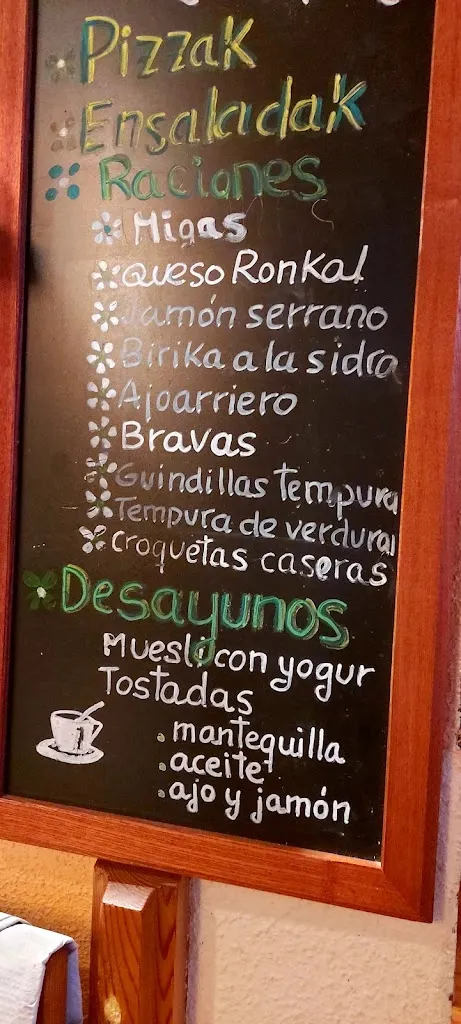 Pizzak
Ensaladak
Raciones
Migas
Queso Ronkal
Jamón serrano
Birika a la sidra
Ajoarriero
Bravas
Guindillas tempura
Tempura de verduras
Croquetas caseras
Desayunos
Muesli con yogur
Tostadas
. mantequilla
. aceite
. ajo y jamón